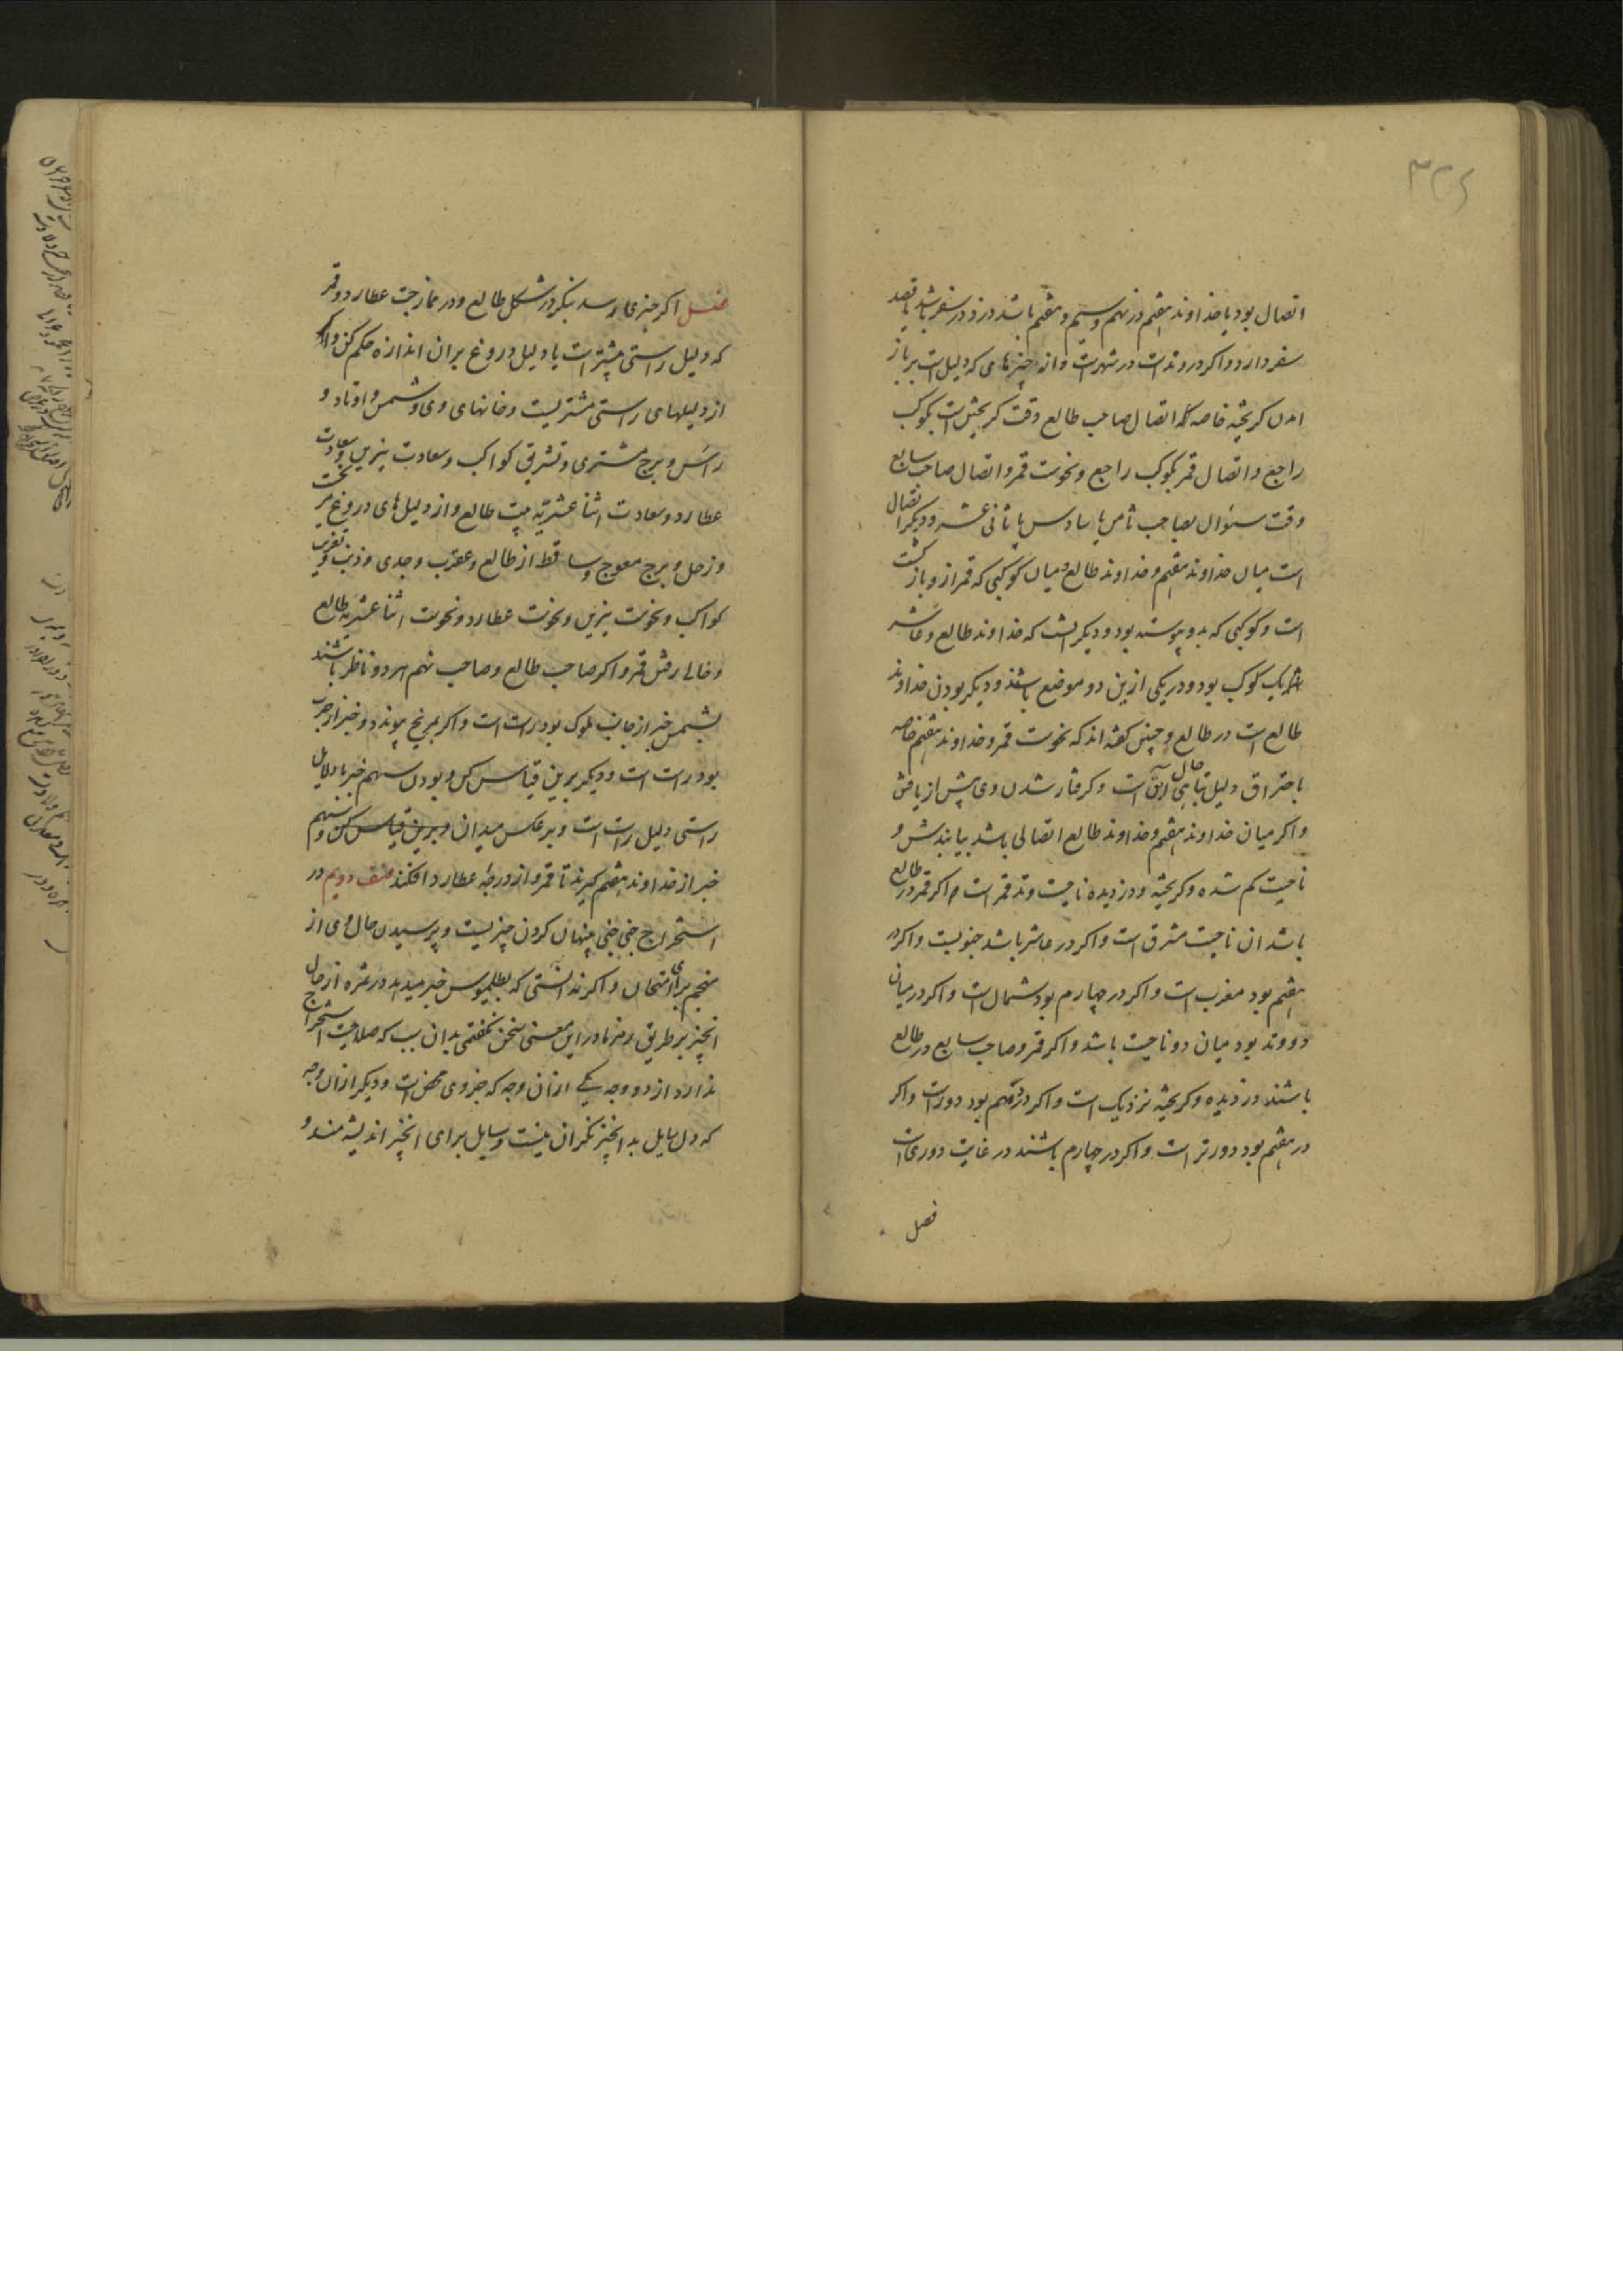 ۳۲۶
اتصال بود یا خداوند هفتم در نهم و سیم و هفتم باشد دزد در سفر باشد یا قصد
سفر دارد و اکر در وتدست در شهرست و از چیزهای که دلیل است بر باز
امدن کریخته خاصه اتصال صاحب طالع وقت کریختن است بکوکب
راجع و اتصال قمر بکوکب راجع و نحوست قمر و اتصال صاحب سابع
وقت سؤال بصاحب ثامن یا سادس یا ثانی عشر و دیکر اتصال
است میان خداوند هفتم و خداوند طالع و میان کوکبی که قمر ازو باز کشت
است و کوکبی که بدو پیوسته بود و دیکر انست که خداوند طالع و عاشر
شریک کوکب بود و در یکی ازین دو موضع باشند و دیکر بودن خداوند
طالع است در طالع و چنین کفته اند که نحوست قمر و خداوند هفتم خاصه
باحتراق دلیل تباهی حال آبق است و کرفتار شدن وی پیش از یافتن
و اکر میان خداوند هفتم و خداوند طالع اتصالی باشد بیابندش و
ناحیت کم شده و کریخته و دزدیده ناحیت وتد قمر است و اکر قمر در طالع
باشد ان ناحیت مشرق است و اکر در عاشر باشد جنوبست و اکر در
هفتم بود مغرب است و اکر در چهارم بود شمال است و اکر در میان
دو وتد بود میان دو ناحیت باشد و اکر قمر و صاحب سابع در طالع
باشند دزدیده و کریخته نزدیک است و اکر در دهم بود دورست و اکر
در هفتم بود دورتر است و اکر در چهارم باشند در غایت دوری است
فصل
فصل اکر خبری رسد بنکر در شکل طالع و در ممازجت عطارد و قمر
که دلیل راستی بیشتر است یا دلیل دروغ بران اندازه حکم کن و اکر
از دلیلهای راستی مشتریست و خانهای وی و شمس و اوتاد و
راس و برج مشتری و تشریق کواکب و سعادت نیرین و سعادت
عطارد و سعادت اثنا عشریه بیت طالع و از دلیل های دروغ نحست
و زحل و برج معوج و ساقط از طالع و عقرب و جدی و ذنب و تغریب
کواکب و نحوست نیرین و نحوست عطارد و نحوست اثنا عشریه طالع
و خالی رفتن قمر و اکر صاحب طالع و صاحب نهم هر دو ناظر باشند
بشمس خبر از جانب ملوک بود راست است و اکر بمریخ پیوندد و خبر از حرب
بود راست است و دیکر برین قیاس کن و بودن سهم خبر با دلایل
راستی دلیل راست است و بر عکس میدان و برین قیاس کن و سهم
خبر از خداوند هفتم کیرند تا قمر و از درجهٔ عطارد افکنند صنف دویم در
استخراج خبی خبی پنهان کردن چیزیست و پرسیدن حال وی از
منجم برای امتحان و اکر ندانستی که بطلمیوس خبر میدهد در ثمره از حال
انچیز بر طریق رمز ما در این معنی سخن نکفتمی بدان سبب که صلاحیت استخراج
ندارد از دو وجه یکی از ان وجه که جزوی محض است و دیکر از ان وجه
که دل سایل بد انچیز نکران نیست و سایل برای انچیز اندیشه مند و